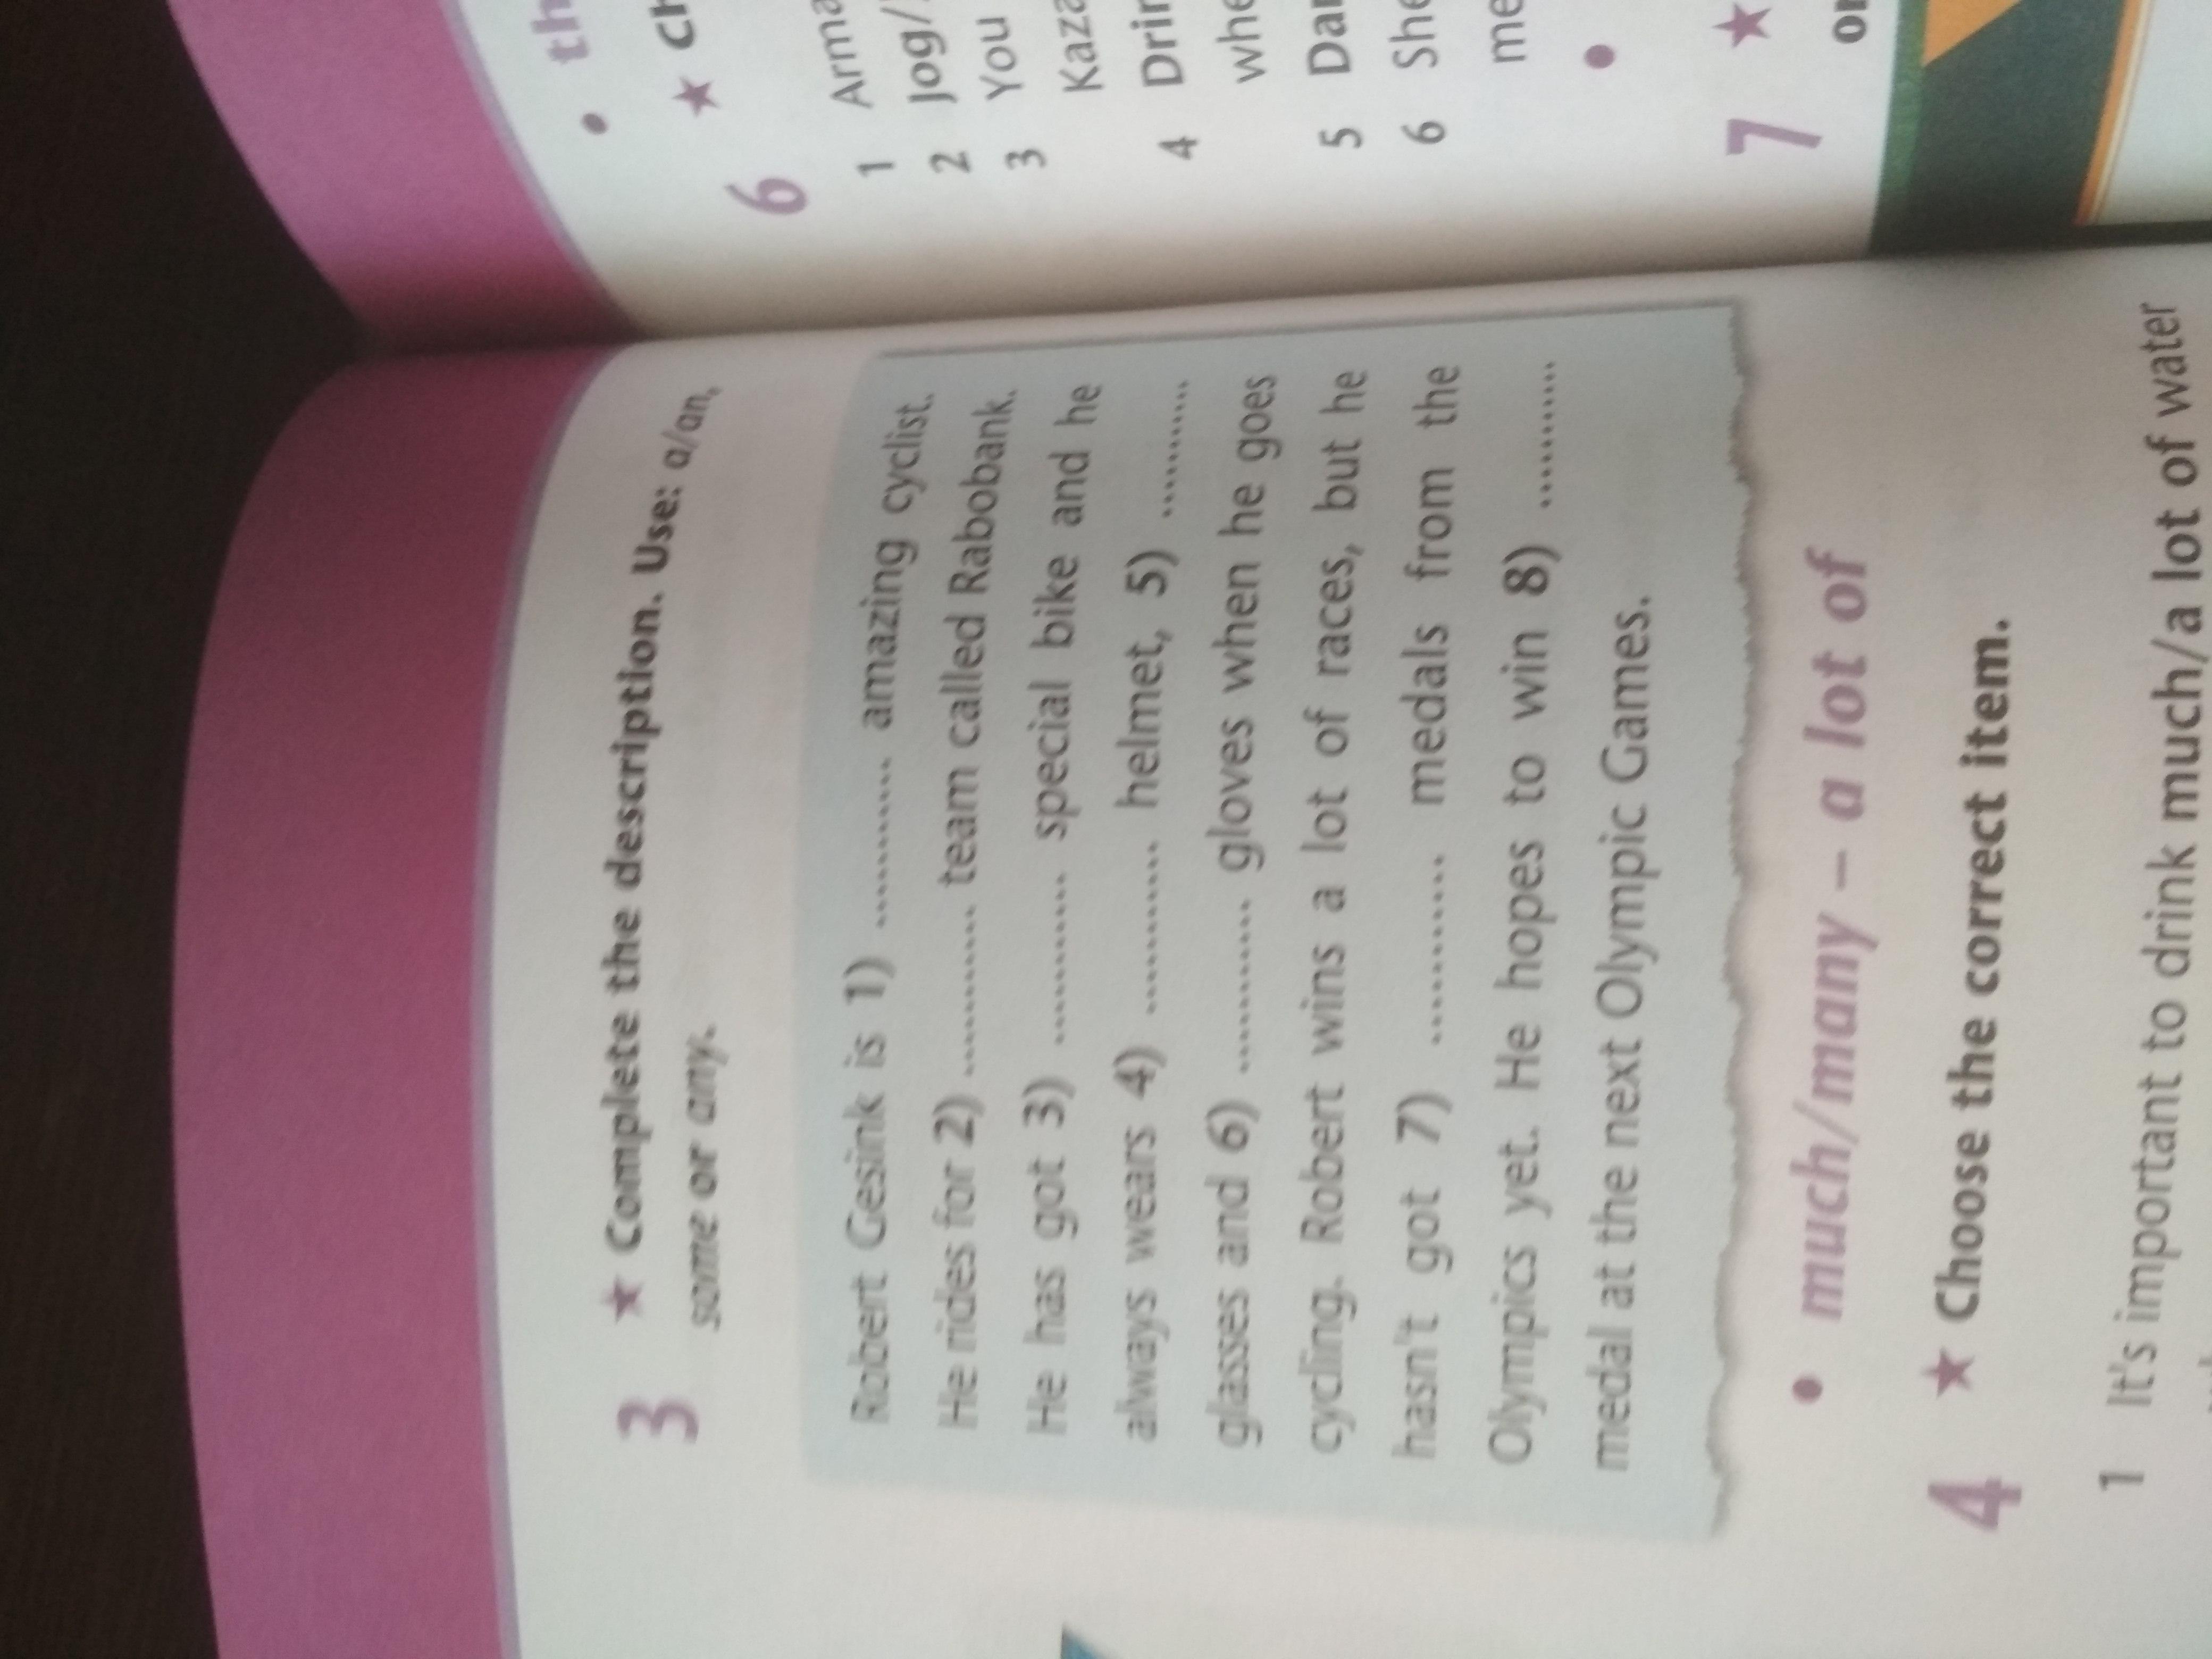 3 ★ Complete the description. Use: a/an,
some or any.
Robert Gesink is 1) ............ amazing cyclist.
He rides for 2) ............ team called Rabobank.
He has got 3) ............ special bike and he
always wears 4) ............ helmet, 5) ..........
glasses and 6) ............ gloves when he goes
cycling. Robert wins a lot of races, but he
hasn't got 7) ............ medals from the
Olympics yet. He hopes to win 8) ...........
medal at the next Olympic Games.
• much/many – a lot of
4 ★ Choose the correct item.
1 It's important to drink much/a lot of water
• th
6 ★ Ch
1 Arma
2 Jog/
3 You
Kaza
4 Drin
whe
5 Dan
6 She
me
•
7 ★
or